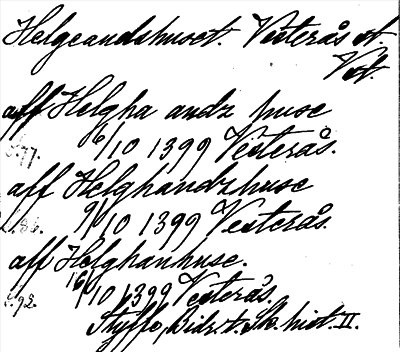 Helgeandshuset. Vesterås st.
Vst.
aff Helgha andz huse
6/10 1399 Vesterås.
s. 77.
aff Helghandzhuse
9/10 1399 Vesterås.
s. 86.
aff Helghanhuse.
16/10 1399 Vesterås.
s. 92.
Styffe, Bidr. t. Sk. hist. II.